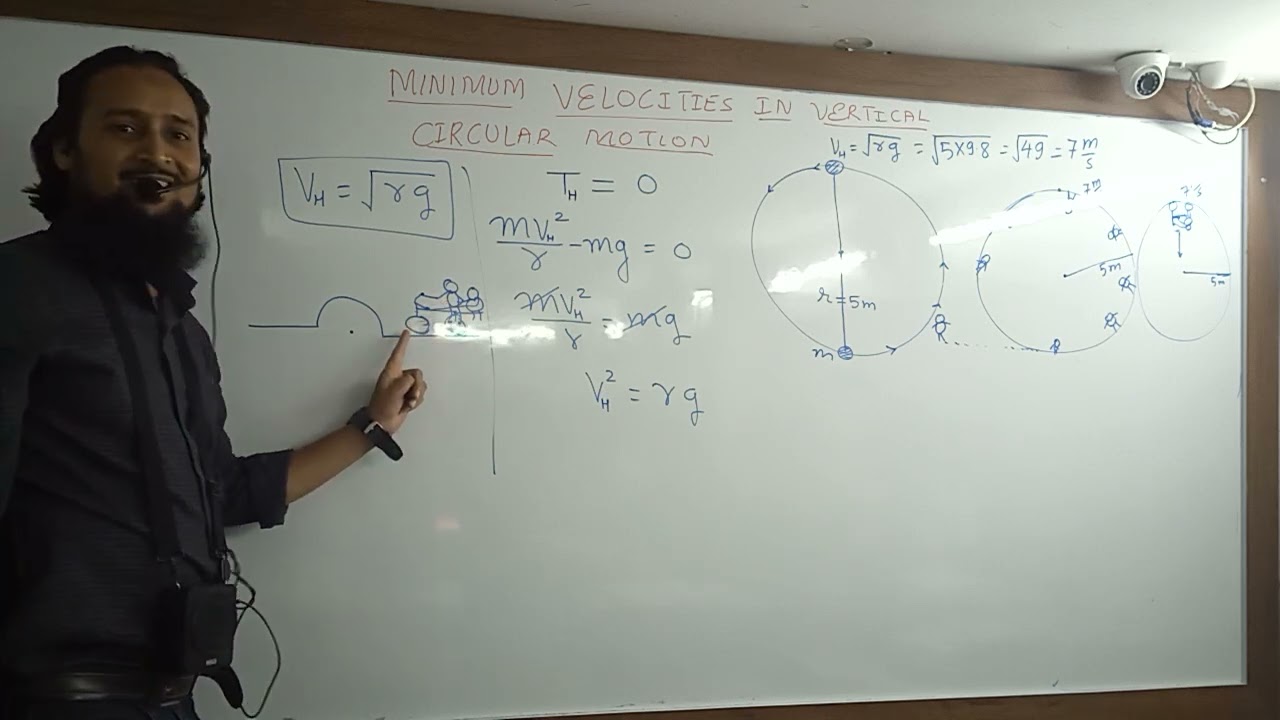 MINIMUM VELOCITIES IN VERTICAL
CIRCULAR MOTION
V_H = √rg
T_H = 0
mV_H²/r - mg = 0
mV_H²/r = mg
V_H² = rg
V_H = √rg = √5×9.8 = √49 = 7 m/s
r=5m
m
7m
5m
5m